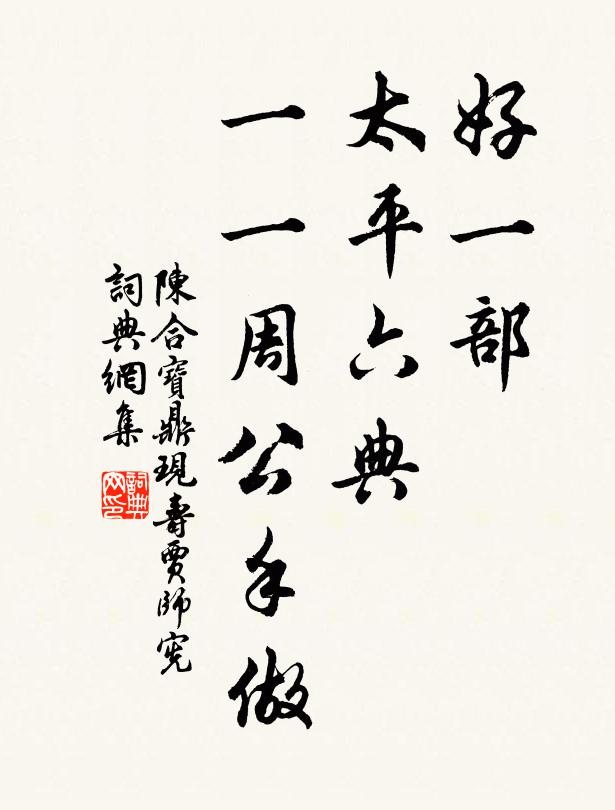 好一部
太平六典
一一周公手做
陳合寶鼎現壽賈師憲
詞典網集
詞典
网印